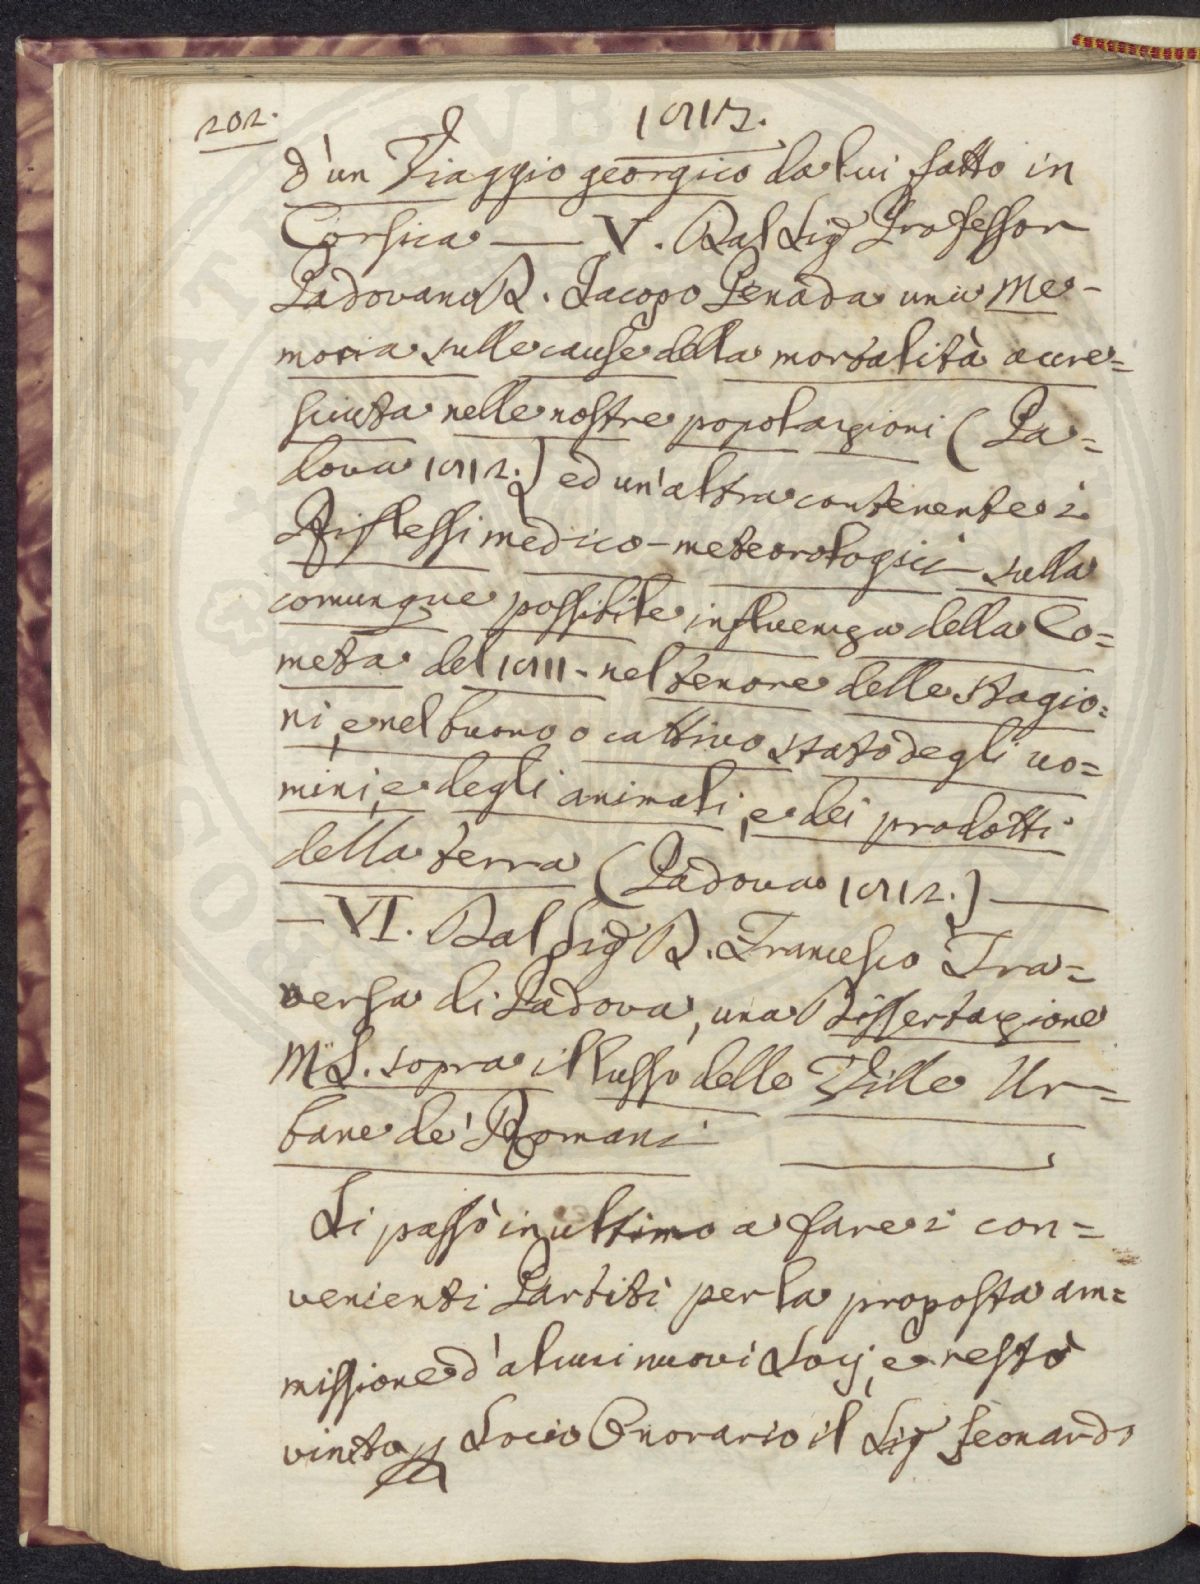 202.
1813.
d'un Viaggio georgico da lui fatto in
Corsica — V. Dal Sig.r Professor
Padovano D. Jacopo Penada una Me-
moria sulle cause della mortalità accre=
sciuta nelle nostre popolazioni (Pa=
dova 1812.) ed un'altra contenente i
Riflessi medico-meteorologici sulla
comunque possibile influenza della Co=
meta del 1811. nel tenore delle stagio=
ni, e nel buono o cattivo stato degli uo=
mini, e degli animali, e dei prodotti
della terra (Padova 1812.) —
— VI. Dal Sig.r D. Francesco Tra=
versa di Padova, una Dissertazione
MS. sopra il lusso delle Ville Ur=
bane de' Romani
Si passò in ultimo a fare i con=
venienti Partiti per la proposta am=
missione d'alcuni nuovi Socj, e restò
vinto Socio Onorario il Sig.r Leonardo